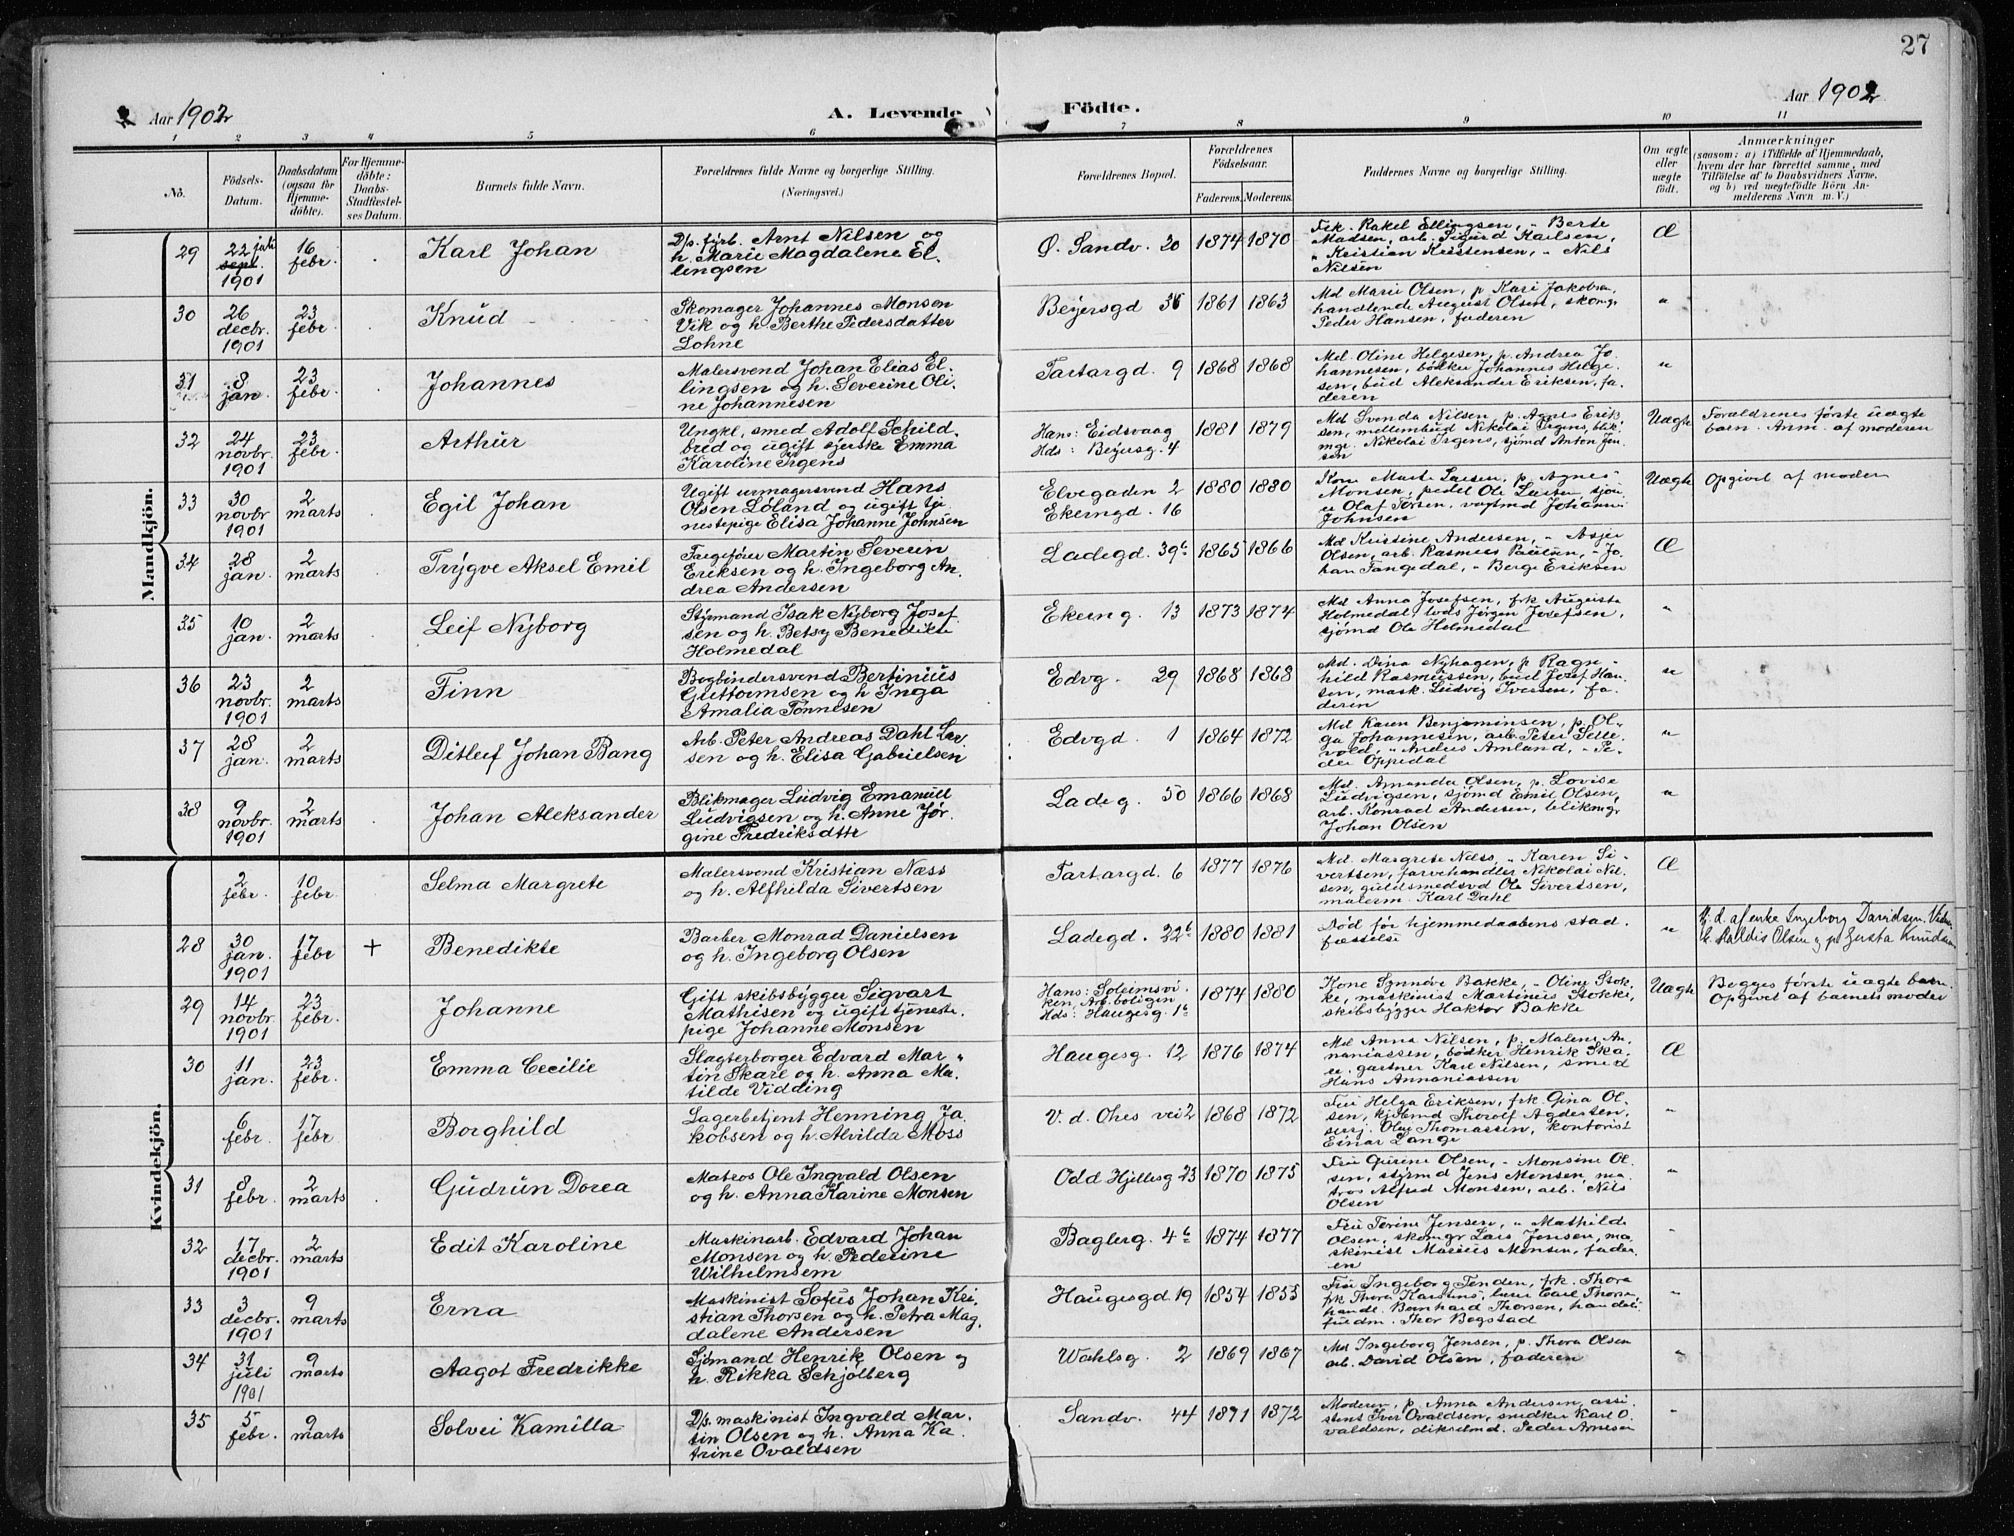 27
Aar 1902
A. Levende
Födte.
Aar 1902
1 2 3 4 5 6 7 8 9 10 11
No.
Födsels-
Datum.
Daabsdatum
(ogsaa for
Hjemme-
döbte).
For Hjemme-
döbte:
Daabs-
Stadfæstel-
ses Datum.
Barnets fulde Navn.
Forældrenes fulde Navne og borgerlige Stilling.
(Næringsvei.)
Forældrenes Bopæl.
Forældrenes
Födselsaar.
Faderens. Moderens.
Faddernes Navne og borgerlige Stilling.
Om ægte
eller
uægte
födt.
Anmærkninger
(saasom: a) i Tilfælde af Hjemmedaab,
hvem der har forrettet samme, med
Tilföielse af to Daabsvidners Navne,
og b) ved uægtefödte Börn An-
melderens Navn m. V.)
Mandkjön.
29
22 juli
sept.
1901
16
febr.
Karl Johan
D/s. fyrb. Arnt Nilsen og
h. Marie Magdalene El-
lingsen
Ø. Sandv. 20
1874 1870
Frk. Rakel Ellingsen, " Berte
Madsen, arb. Sigurd Karlsen,
" Kristian Kristensen, " Nils
Nilsen
Æ
30
26
decbr.
1901
23
febr.
Knud
Skomager Johannes Monsen
Vik og h. Berthe Pedersdatter
Lohne
Beyersgd 36
1861 1863
Md Marie Olsen, p Kari Jakobsen
handlende August Olsen, skomgr
Peder Hansen, faderen
"
31
8
jan.
23
febr.
Johannes
Malersvend Johan Elias El-
lingsen og h. Severine Oli-
ne Johannesen
Tartargd. 9
1868 1868
Md. Oline Helgesen, p. Andrea Jo-
hannesen, bödker Johannes Helge-
sen, bud Aleksander Eriksen, fa-
deren
"
32
24
novbr.
1901
23
febr.
Arthur
Ungkl, smed Adolf Schild-
bred og ugift syerske Emma
Karoline Irgens
Hans: Eidsvaag
Hds: Beyersg. 4
1881 1879
Md Svenda Nilsen, p. Agnes Erik-
sen, mellembud Nikolai Irgens, blik-
mgr. Nikolai Irgens, sjömd Anton Jen-
sen
Uægte
Forældrenes förste uægte
barn. Anm. af moderen
33
30
novbr
1901
2
marts
Egil Johan
Ugift urmagersvend Hans
Olsen Løland og ugift tje-
nestepige Elisa Johanne Johnsen
Elvegaden 2
Ekerngd. 16
1880 1880
Kone Marit Larsen, p. Agnes
Monsen, pedel Ole Larsen
Olaf Torsen, vagtmd Johann
Johnsen
Uægte
Opgivet af moder
34
28
jan.
2
marts
Trygve Aksel Emil
Færgefører Martin Severin
Eriksen og h. Ingeborg An-
drea Andersen
Ladegd. 39b
1865 1866
Md Kristine Andersen, "
Olsen, arb. Rasmus Paulsen, " Jo-
han Tangedal, " Berge Eriksen
Æ
35
10
jan.
2
marts
Leif Nyborg
Styrmand Isak Nyborg Josef-
sen og h. Betsy Benedikte
Holmedal
Ekerng. 13
1873 1874
Md Anna Josefsen, frk Augusta
Holmedal, lods Jørgen Josefsen,
sjömd Ole Holmedal
"
36
23
novbr.
1901
2
marts
Finn
Bogbindersvend Bertinius
Guttormsen og h. Inga
Amalia Tönnesen
Edvg. 29
1868 1868
Md. Dina Nyhagen, p Ragn-
hild Rasmussen, bud Josef Han-
sen, mask. Ludvig Iversen, fa-
deren
"
37
28
jan.
2
marts
Ditlef Johan Bang
Arb. Peter Andreas Dahl Lar-
sen og h. Elisa Gabrielsen
Edvgd. 1
1864 1872
Md Karen Benjaminsen, p. Ol-
ga Johannesen, arb. Peter Selle-
vold, " Anders Amland, " Pe-
der Oppedal
"
38
9
novbr.
1901
2
marts
Johan Aleksander
Blikmager Ludvig Emanuel
Ludvigsen og h. Anne Jør-
gine Fredriksdttr
Ladeg. 50
1866 1868
Md. Amanda Olsen, p. Lovise
Ludvigsen, sjömd Emil Olsen,
arb. Konrad Andersen, blikmgr
Johan Olsen
"
Kvindekjön.
2
febr.
10
febr.
Selma Margrete
Malersvend Kristian Næss
og h. Alfhilda Sivertsen
Tartargd. 6
1877 1876
Md. Margrete Næss, " Karen Si-
vertsen, farvehandler Nikolai Nil-
sen, guldsmedsvd Ole Sivertsen,
malerm. Karl Dahl
Æ
28
30
jan.
1901
17
febr
+
Benedikte
Barber Monrad Danielsen
og h. Ingeborg Olsen
Ladegd. 22b
1880 1881
Død før hjemmedaabens stad-
fæstelse
"
H. d. af enke Ingeborg Davidsen. Vidner
h. Haldis Olsen og p. Gusta Knudsen
29
14
novbr.
1901
23
febr.
Johanne
Gift skibsbygger Sigvart
Mathisen og ugift tjeneste-
pige Johanne Monsen
Hans: Soleimsvi-
ken, Arb. boligen
Hds: Haugesg. 1c
1874 1880
Kone Synnöve Bakke, " Oline Stok-
ke, maskinist Martinus Stokke,
skibsbygger Haktor Bakke
Uægte
Begges förste uægte barn.
Opgivet af barnets moder
30
11
jan.
23
febr.
Emma Cecilie
Slagterborger Edvard Mar-
tin Skare og h. Anna Ma-
tilde Vidding
Haugesg. 12
1876 1874
Md Anna Nilsen, p. Malene An-
naniassen, bödker Henrik Ska-
re, gartner Karl Nilsen, smed
Hans Annaniassen
Æ
6
febr.
17
febr.
Borghild
Lagerbetjent Henning Ja-
kobsen og h. Alvilda Moss
V. d. Ohes vei 2
1868 1872
Fru Helga Eriksen, frk. Gina Ol-
sen, kjøbmd Thorolf Agdersen,
Olav Thomassen, kontorist
Einar Lange
"
31
8
febr.
2
marts
Gudrun Dorea
Matros Ole Ingvald Olsen
og h. Anna Karine Monsen
Odd Hjeltesg 23
1870 1875
Fru Gurine Olsen, " Monsine Ol-
sen, styrmd Jens Monsen, ma-
tros Alfred Monsen, arb. Nils
Olsen
"
32
17
decbr.
1901
2
marts
Edit Karoline
Maskinarb. Edvard Johan
Monsen og h. Pederine
Wilhelmsen
Baglerg. 4b
1874 1877
Fru Terine Jensen, " Mathilde
Olsen, skomgr Lars Jensen, ma-
skinist Marius Monsen, fader-
en
"
33
3
decbr.
1901
9
marts
Erna
Maskinist Sofus Johan Kri-
stian Thorsen og h. Petra Mag-
dalene Andersen
Haugesgd 19
1854 1855
Fru Ingeborg Tenden, frk. Thora
Bernhard Thorsen,
Thor Bogstad
"
34
31
juli
1901
9
marts
Aagot Fredrikke
Sjömand Henrik Olsen og
h. Rikka Schjölberg
Wahlsg. 2
1869 1867
Md Ingeborg Jensen, p. Thora Olsen
arb. David Olsen, faderen
"
35
5
febr.
9
marts
Solvei Kamilla
D/s. maskinist Ingvald Mar-
tin Olsen og h. Anna Ka-
trine Ovaldsen
Sandv. 44
1871 1872
Moderen, p. Anna Andersen, assi-
stent Iver Ovaldsen, snedker Karl O-
valdsen, dikselmd. Peder Arnesen
"